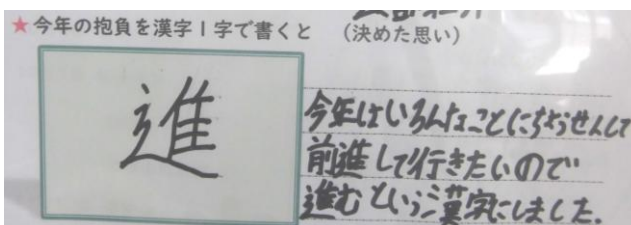 ★今年の抱負を漢字1字で書くと
(決めた思い)
進
今年はいろんなことにちょうせんして
前進して行きたいので
進むという漢字にしました。